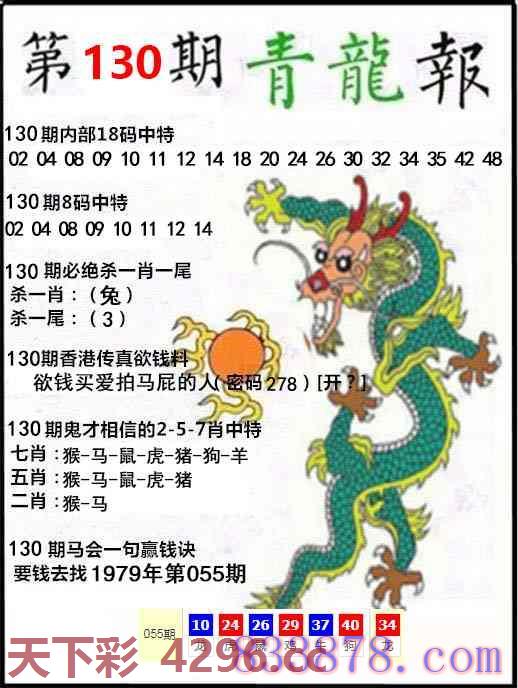 第130期青龍報
130期内部18码中特
02 04 08 09 10 11 12 14 18 20 24 26 30 32 34 35 42 48
130期8码中特
02 04 08 09 10 11 12 14
130期必绝杀一肖一尾
杀一肖：（兔）
杀一尾：（3）
130期香港传真欲钱料
欲钱买爱拍马屁的人（密码278）[开？]
130期鬼才相信的2-5-7肖中特
七肖：猴-马-鼠-虎-猪-狗-羊
五肖：猴-马-鼠-虎-猪
二肖：猴-马
130期马会一句赢钱诀
要钱去找1979年第055期
055期 10 24 26 29 37 40 34
龙 虎 鼠 鸡 牛 狗 龙
天下彩 4296.cc
838878.com